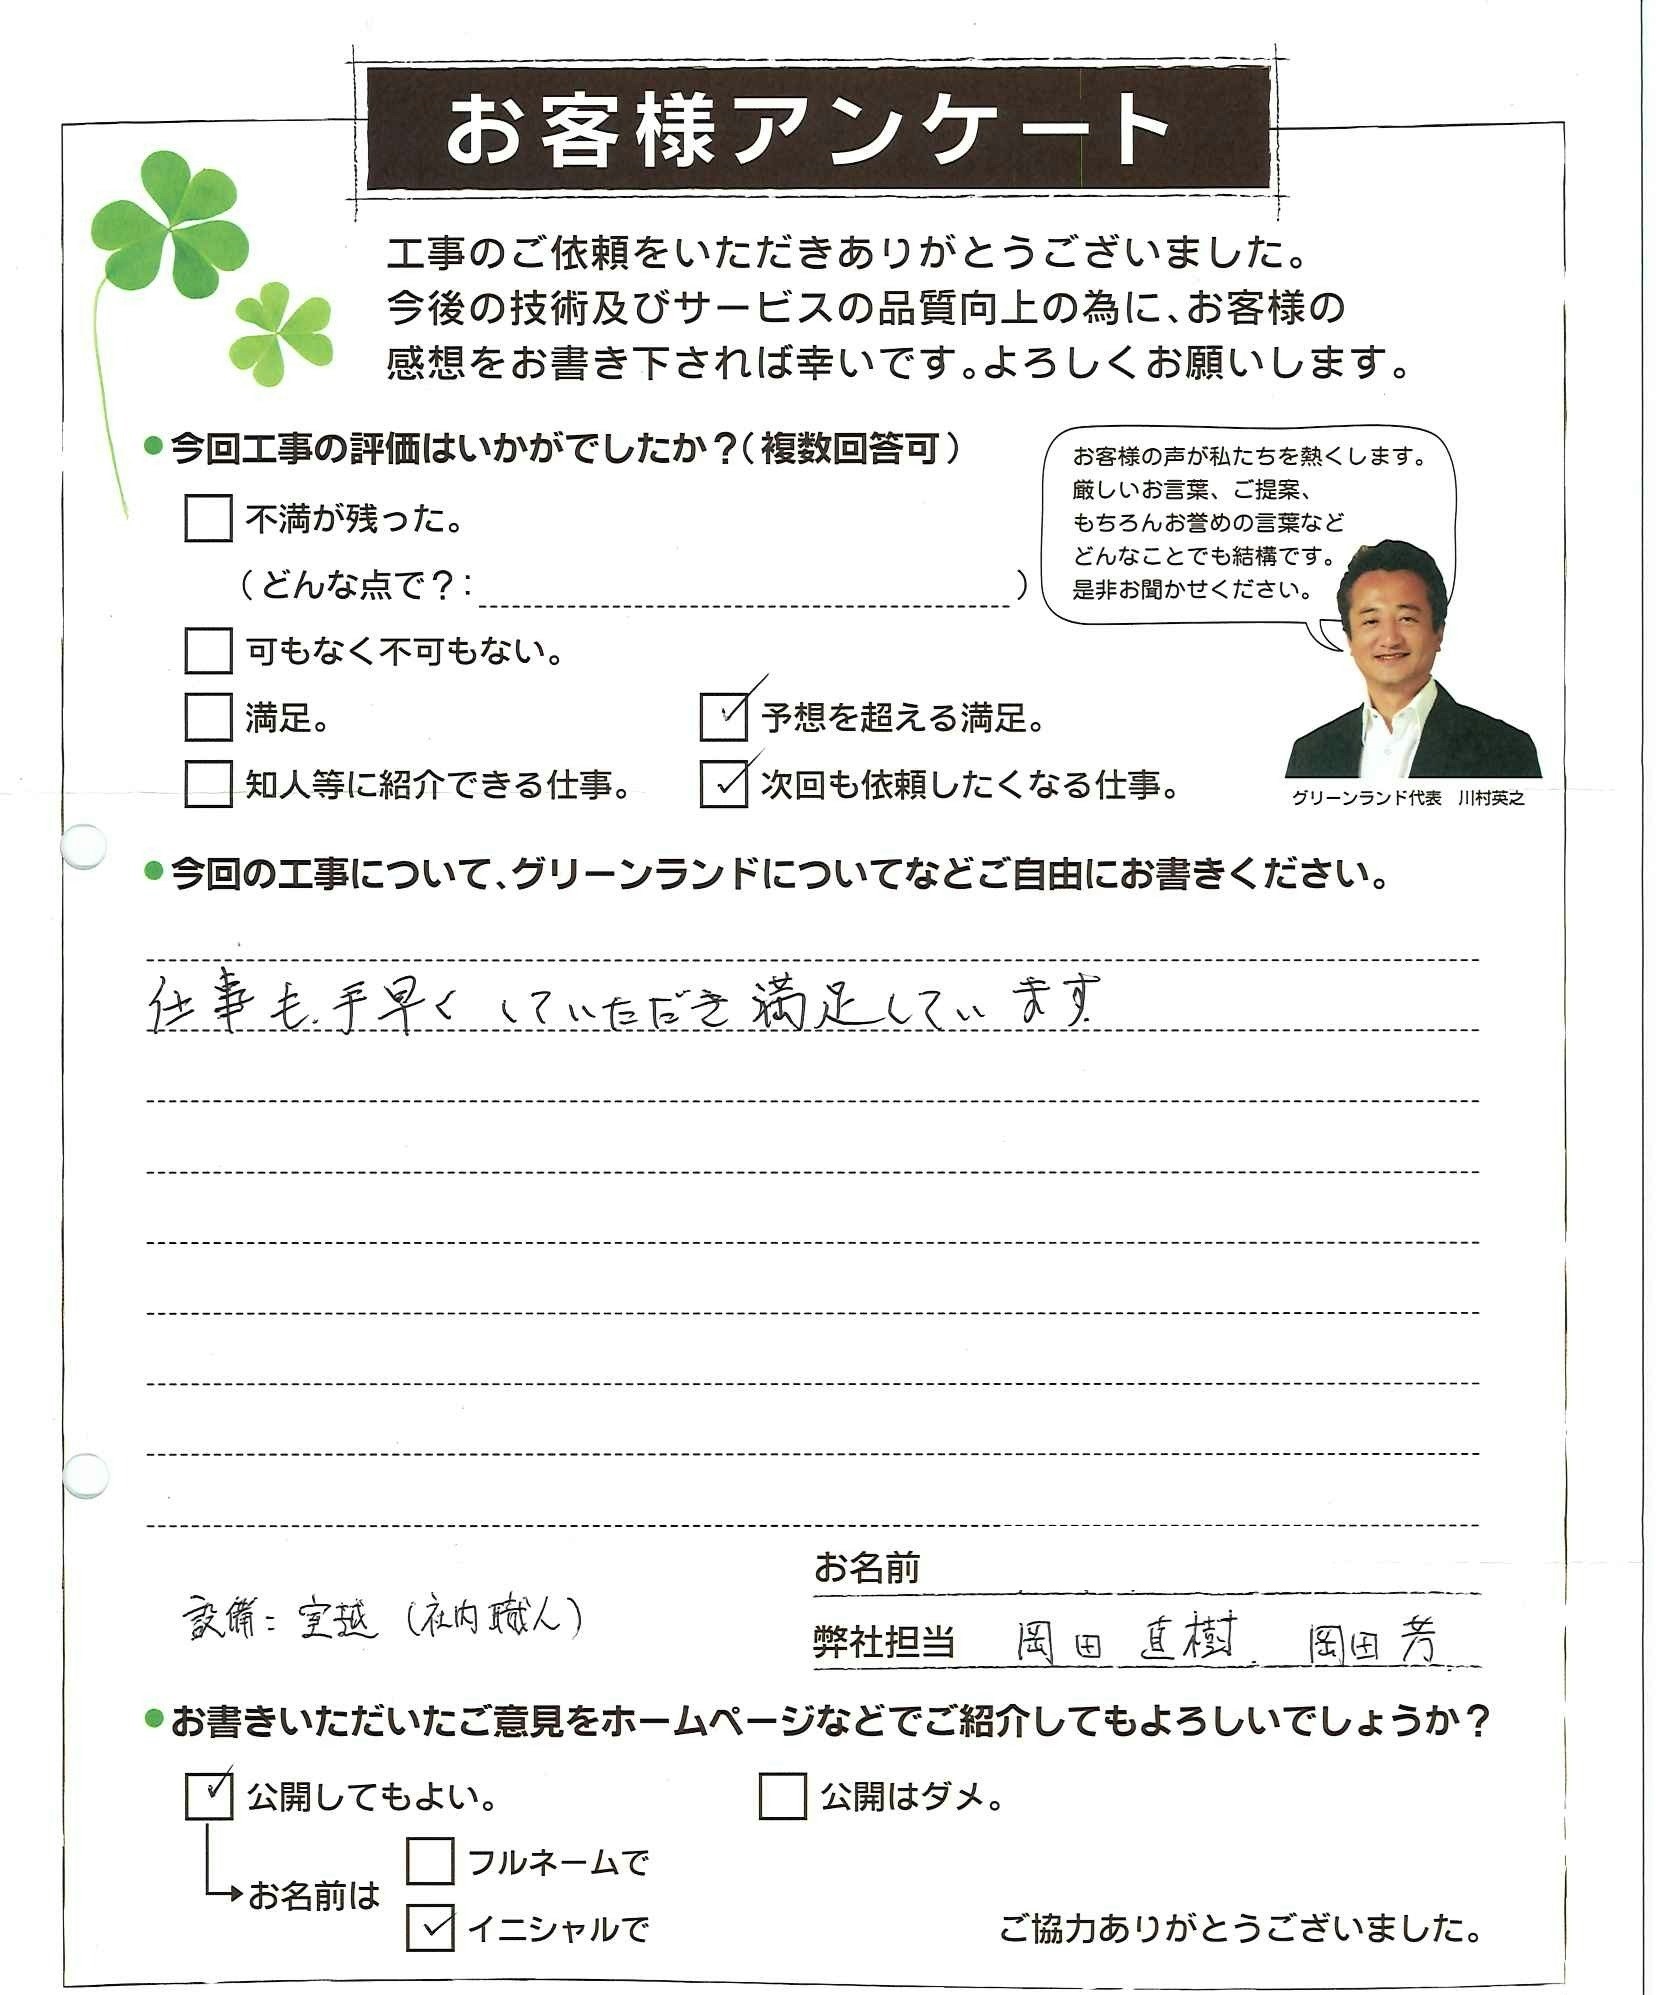 お客様アンケート
工事のご依頼をいただきありがとうございました。
今後の技術及びサービスの品質向上の為に、お客様の
感想をお書き下されば幸いです。よろしくお願いします。
●今回工事の評価はいかがでしたか？（複数回答可）
お客様の声が私たちを熱くします。
厳しいお言葉、ご提案、
もちろんお誉めの言葉など
どんなことでも結構です。
是非お聞かせください。
グリーンランド代表　川村英之
□ 不満が残った。
（どんな点で？：　）
□ 可もなく不可もない。
□ 満足。　☑ 予想を超える満足。
□ 知人等に紹介できる仕事。　☑ 次回も依頼したくなる仕事。
●今回の工事について、グリーンランドについてなどご自由にお書きください。
仕事も手早くしていただき満足しています
お名前
設備：室越（社内職人）
弊社担当　岡田 直樹　岡田 芳
●お書きいただいたご意見をホームページなどでご紹介してもよろしいでしょうか？
☑ 公開してもよい。　□ 公開はダメ。
お名前は
□ フルネームで
☑ イニシャルで
ご協力ありがとうございました。